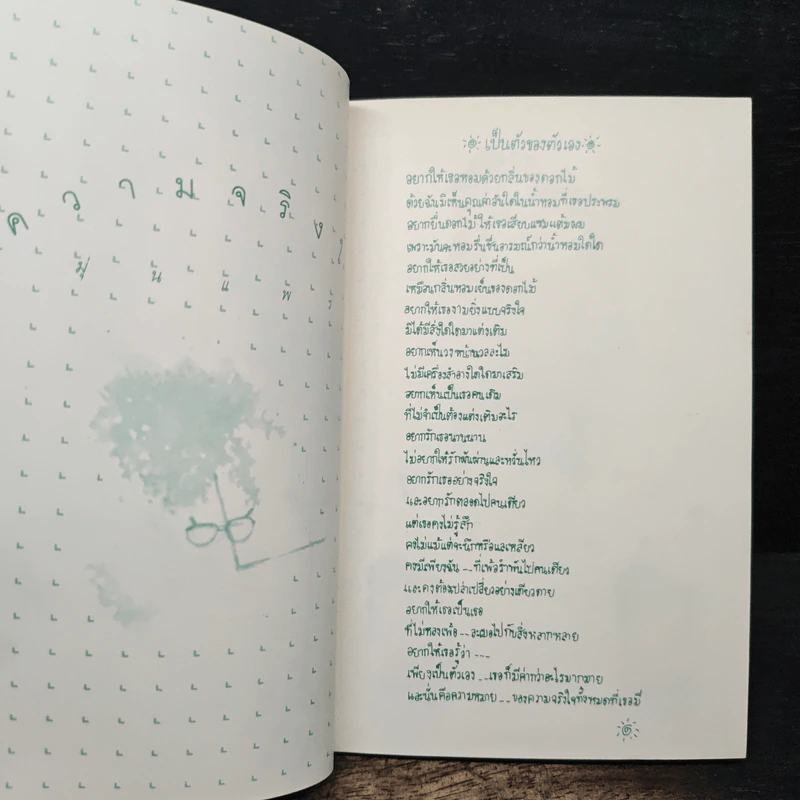 ความจริงใ
มุ่นแพร
เป็นตัวของตัวเอง
อยากให้เธอหอมด้วยกลิ่นของดอกไม้
ด้วยฉันมิเห็นคุณค่าอันใดในน้ำหอมที่เธอประพรม
อยากยื่นดอกไม้ให้เธอเสียบแซมแต้มผม
เพราะมันจะหอมรื่นชื่นอารมณ์กว่าน้ำหอมใดใด
อยากให้เธอสวยอย่างที่เป็น
เหมือนกลิ่นหอมเย็นของดอกไม้
อยากให้เธองามยิ่งแบบจริงใจ
มิได้มีสิ่งใดใดมาแต่งเติม
อยากเห็นวงหน้านวลละไม
ไม่มีเครื่องสำอางใดใดมาเสริม
อยากเห็นเป็นเธอคนเดิม
ที่ไม่จำเป็นต้องแต่งเติมอะไร
อยากรักเธอนานนาน
ไม่อยากให้รักผันผ่านและหวั่นไหว
อยากรักเธออย่างจริงใจ
และอยากรักตลอดไปคนเดียว
แต่เธอคงไม่รู้สึก
คงไม่แม้แต่จะนึกหรือแลเหลียว
คงมีเพียงฉัน--ที่เพ้อรำพันไปคนเดียว
และคงต้องเปล่าเปลี่ยวอย่างเดียวดาย
อยากให้เธอเป็นเธอ
ที่ไม่หลงเพ้อ--ละเมอไปกับสิ่งหลากหลาย
อยากให้เธอรู้ว่า---
เพียงเป็นตัวเอง--เธอก็มีค่ากว่าอะไรมากมาย
และนั่นคือความหมาย--ของความจริงใจทั้งหมดที่เธอมี